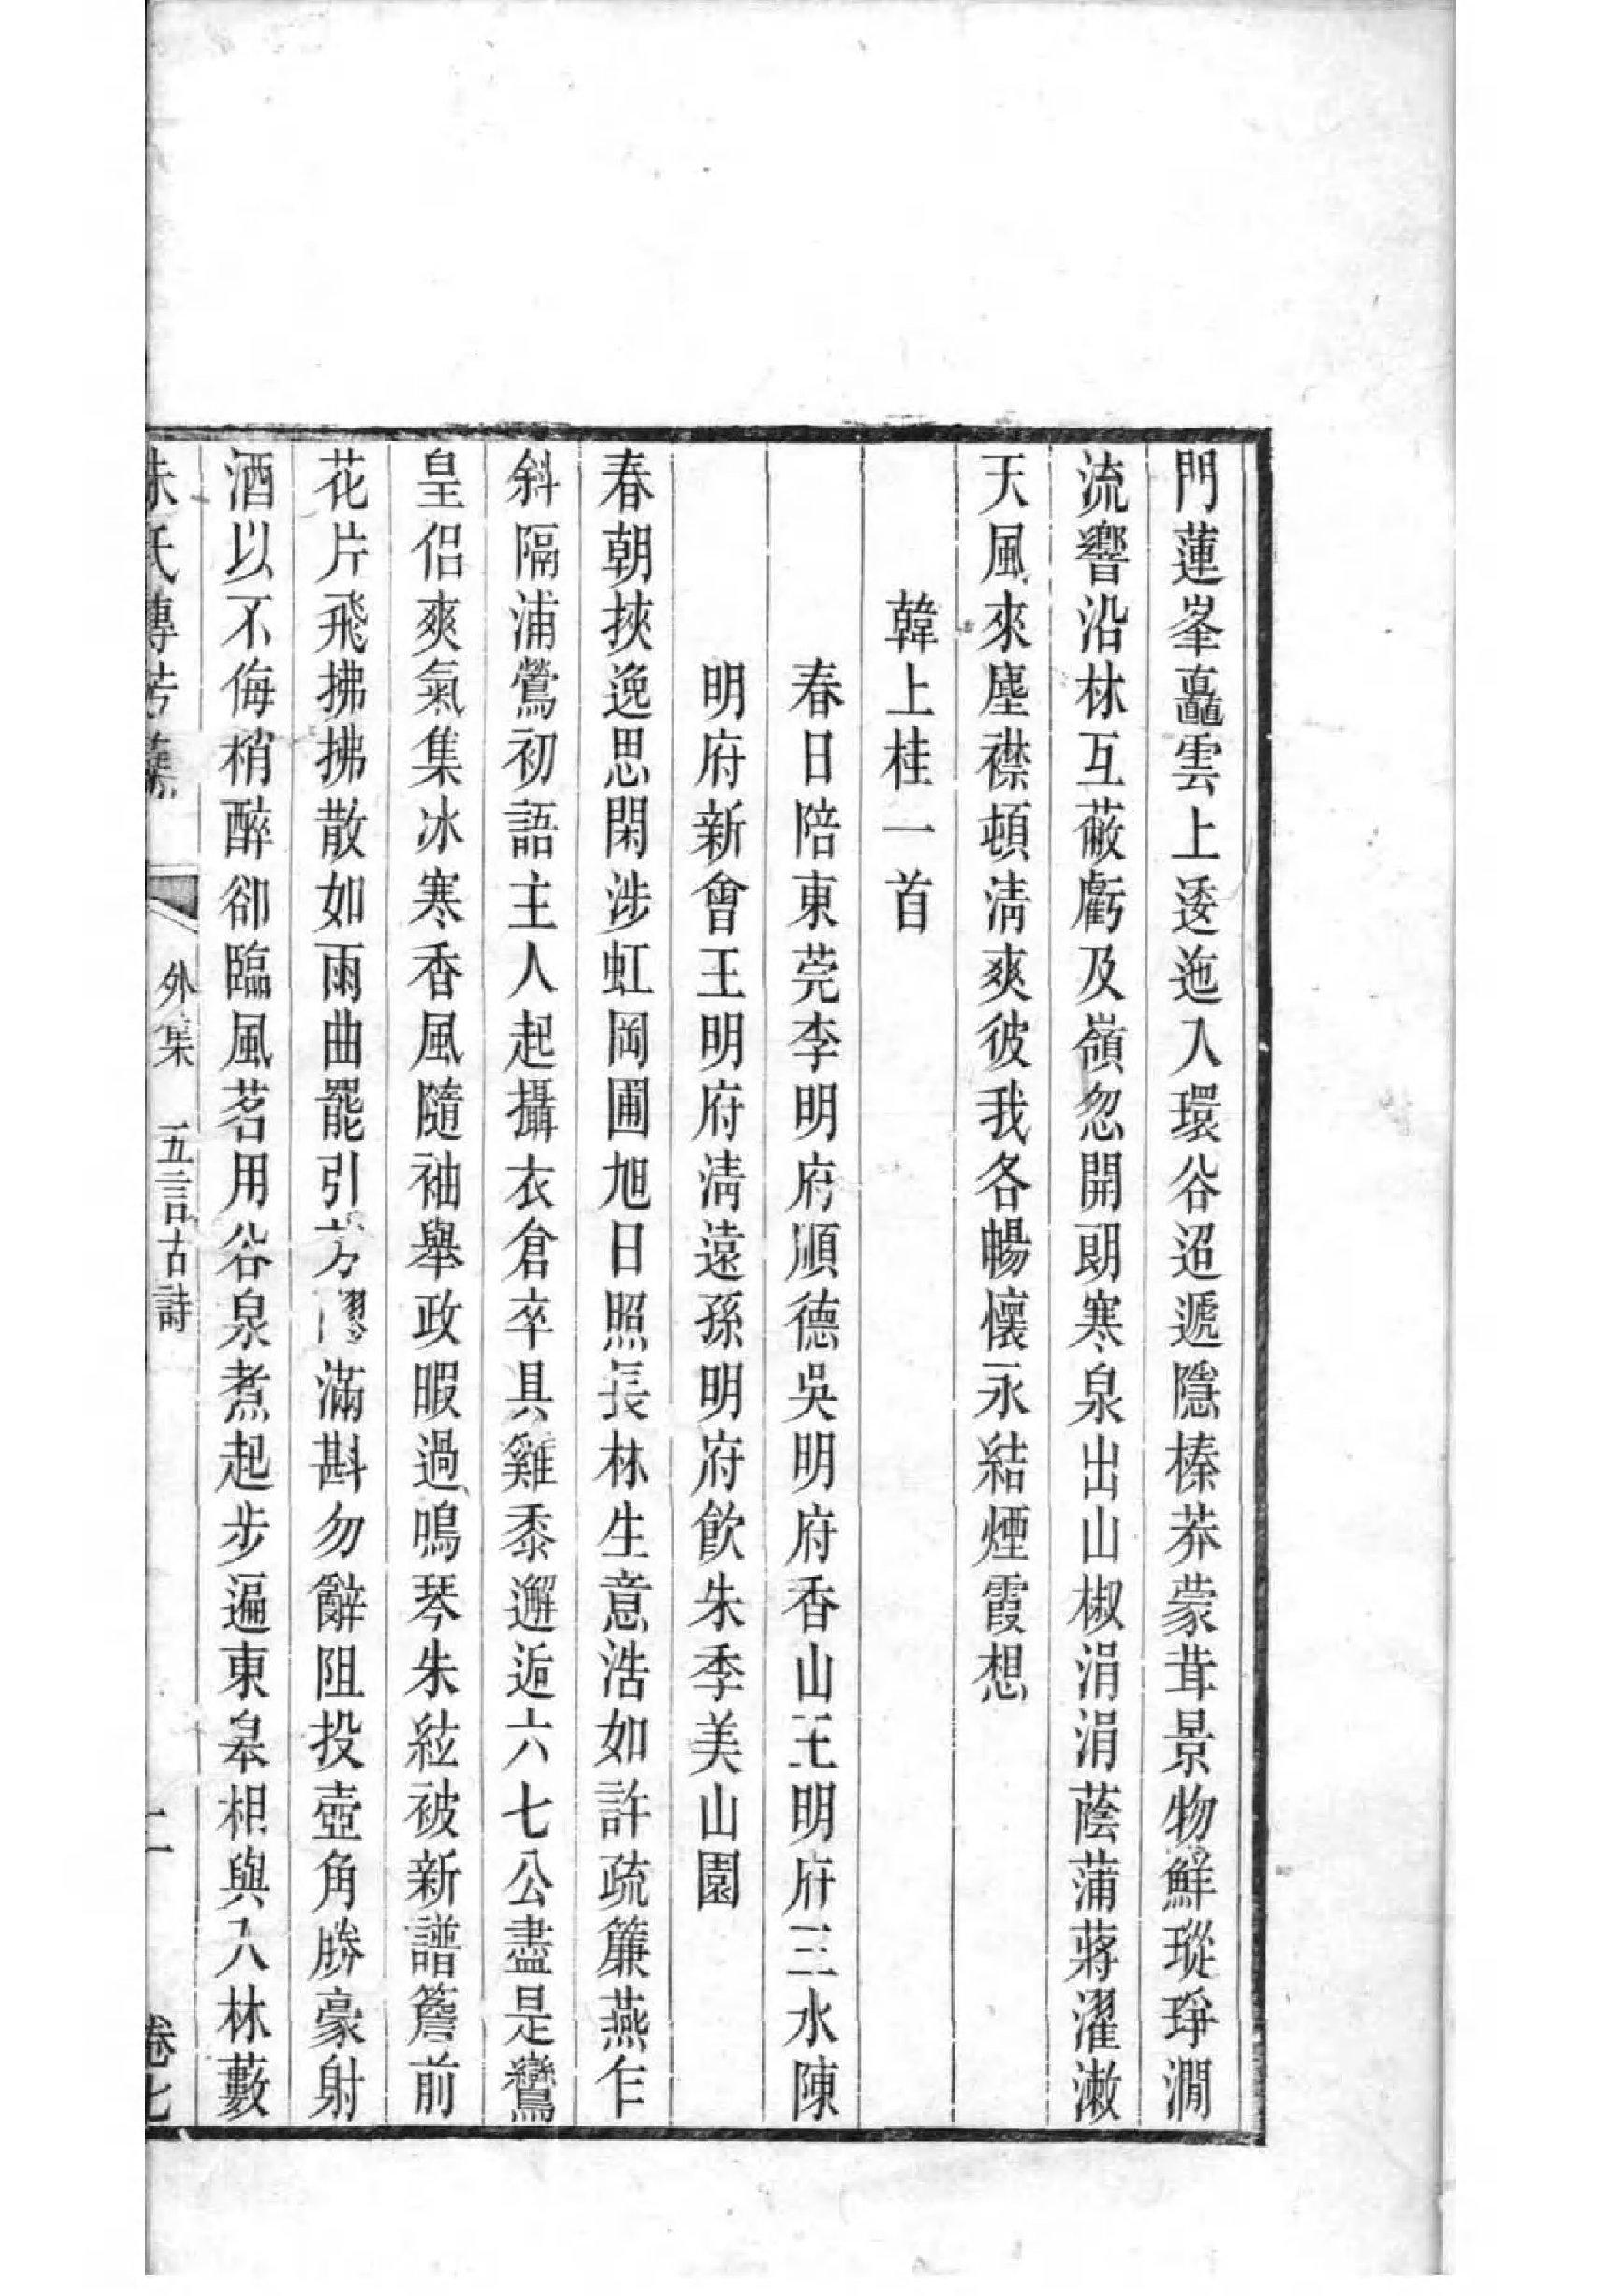 門蓮峯矗雲上逶迤入環谷迢遞隱榛莽蒙茸景物鮮瑽琤澗
流響沿林互蔽虧及嶺忽開朗寒泉出山椒涓涓蔭蒲蔣濯漱
天風來塵襟頓淸爽彼我各暢懷永結煙霞想
韓上桂一首
春日陪東莞李明府順德吳明府香山王明府三水陳
明府新會王明府淸遠孫明府飮朱季美山園
春朝挾逸思閑涉虹岡圃旭日照長林生意浩如許疏簾燕乍
斜隔浦鶯初語主人起攝衣倉卒具雞黍邂逅六七公盡是鸞
皇侶爽氣集冰寒香風隨袖舉政暇過鳴琴朱絃被新譜簷前
花片飛拂拂散如雨曲罷引方醪滿斟勿辭阻投壺角勝豪射
酒以不侮梢醉卻臨風茗用谷泉煮起步遍東皋相與入林藪
朱氏傳芳集 外集 五言古詩 卷七